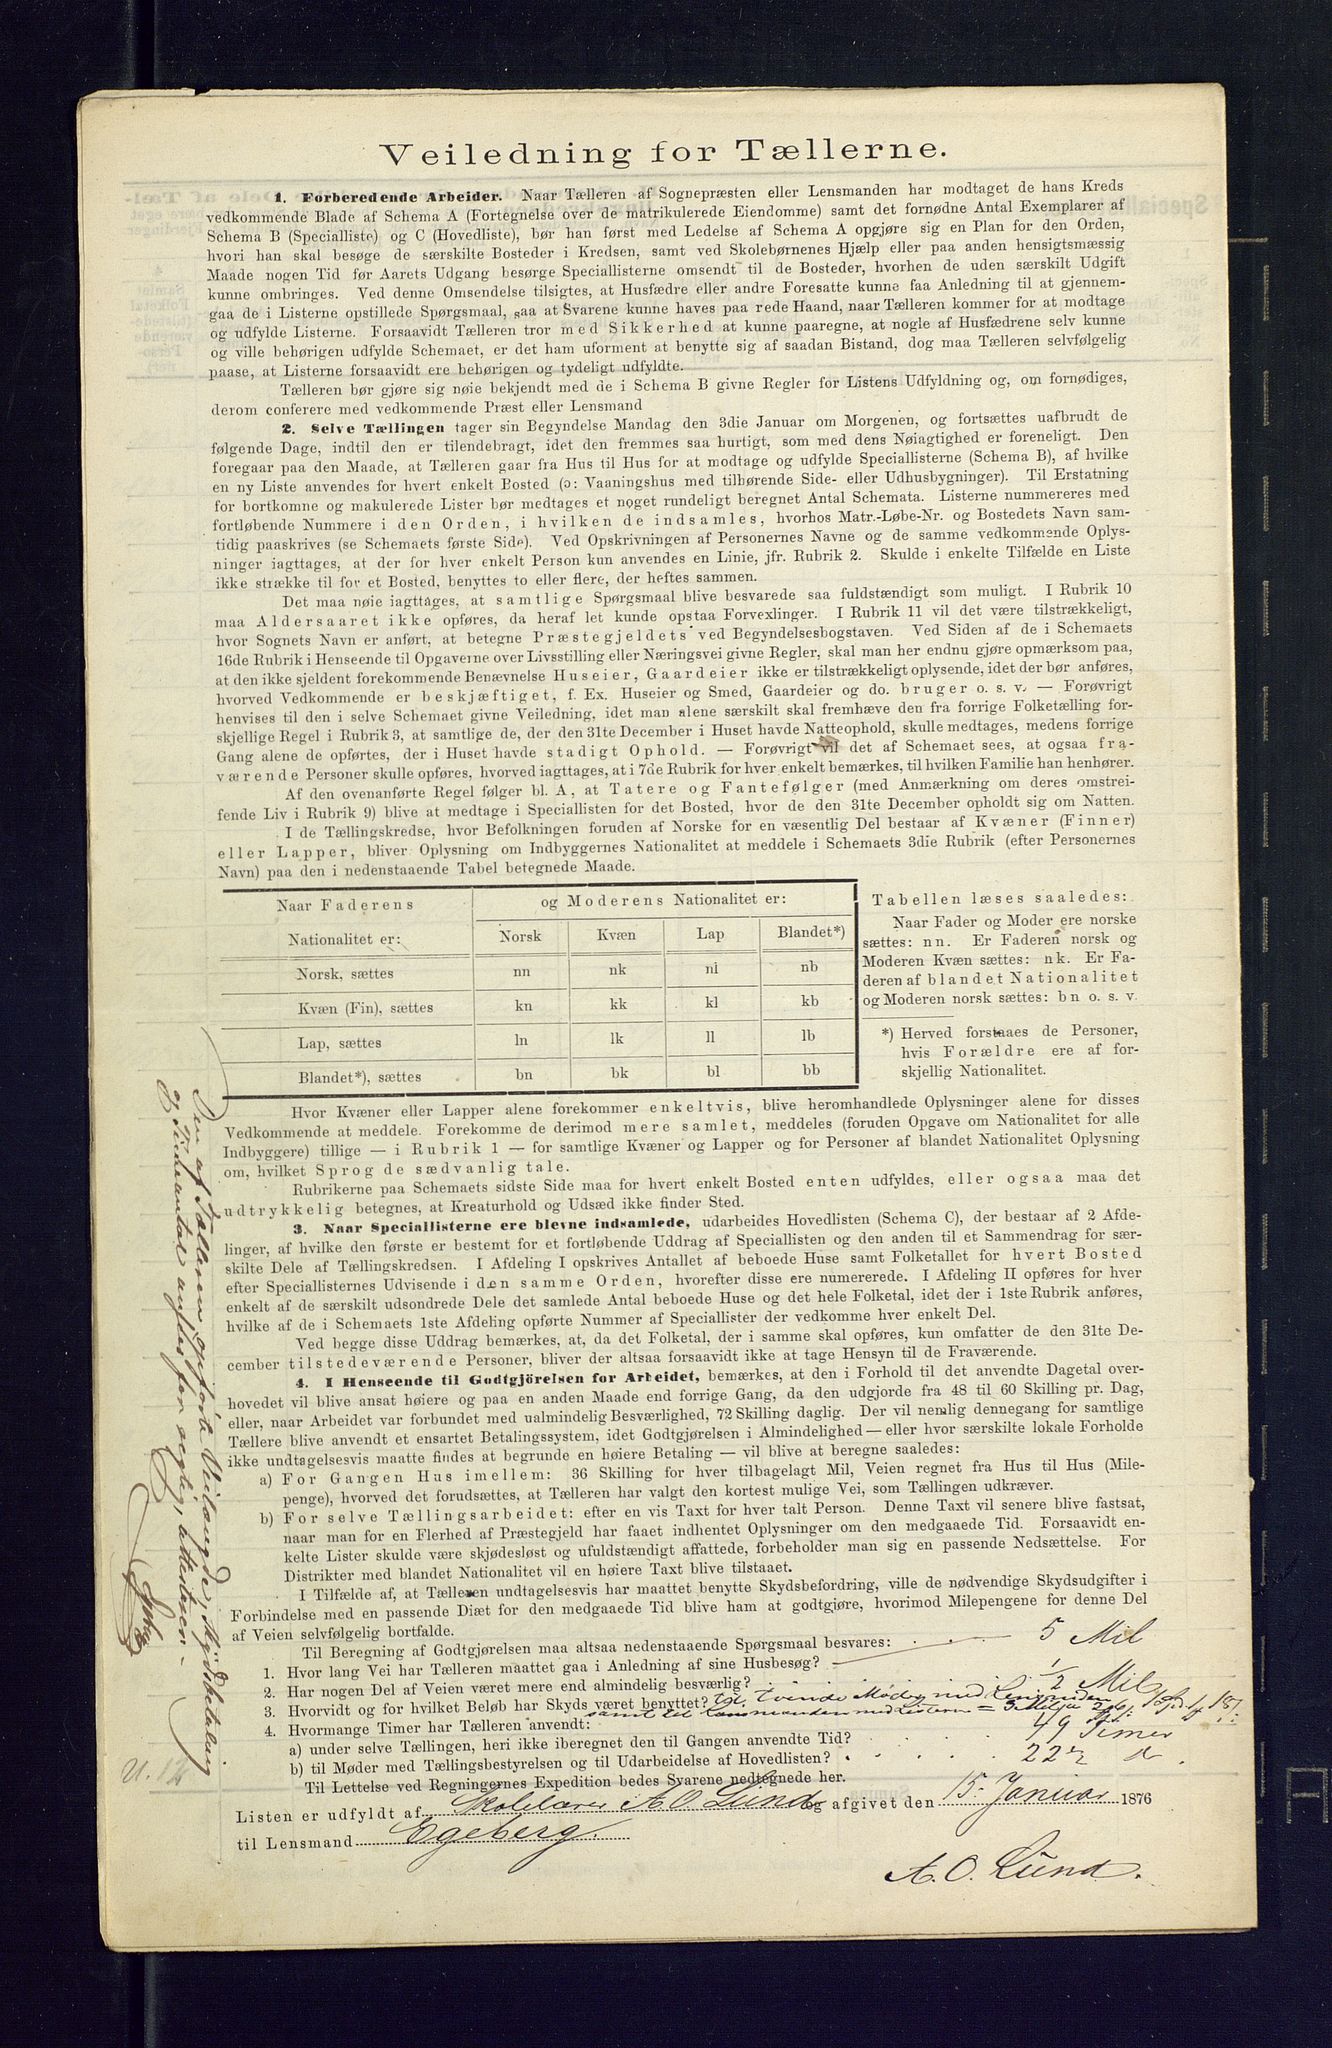 Veiledning for Tællerne.
1. Forberedende Arbeider. Naar Tælleren af Sognepræsten eller Lensmanden har modtaget de hans Kreds
vedkommende Blade af Schema A (Fortegnelse over de matrikulerede Eiendomme) samt det fornødne Antal Exemplarer af
Schema B (Specialliste) og C (Hovedliste), bør han først med Ledelse af Schema A opgjøre sig en Plan for den Orden,
hvori han skal besøge de særskilte Bosteder i Kredsen, samt ved Skolebørnenes Hjælp eller paa anden hensigtsmæssig
Maade nogen Tid før Aarets Udgang besørge Speciallisterne omsendt til de Bosteder, hvorhen de uden særskilt Udgift
kunne ombringes. Ved denne Omsendelse tilsigtes, at Husfædre eller andre Foresatte kunne faa Anledning til at gjennem-
gaa de i Listerne opstillede Spørgsmaal, saa at Svarene kunne haves paa rede Haand, naar Tælleren kommer for at modtage
og udfylde Listerne. Forsaavidt Tælleren tror med Sikkerhed at kunne paaregne, at nogle af Husfædrene selv kunne
og ville behørigen udfylde Schemaet, er det ham uforment at benytte sig af saadan Bistand, dog maa Tælleren selvfølgelig
paase, at Listerne forsaavidt ere behørigen og tydeligt udfyldte.
Tælleren bør gjøre sig nøie bekjendt med de i Schema B givne Regler for Listens Udfyldning og, om fornødiges,
derom conferere med vedkommende Præst eller Lensmand
2. Selve Tællingen tager sin Begyndelse Mandag den 3die Januar om Morgenen, og fortsættes uafbrudt de
følgende Dage, indtil den er tilendebragt, idet den fremmes saa hurtigt, som med dens Nøiagtighed er foreneligt. Den
foregaar paa den Maade, at Tælleren gaar fra Hus til Hus for at modtage og udfylde Speciallisterne (Schema B), af hvilke
en ny Liste anvendes for hvert enkelt Bosted (ɔ: Vaaningshus med tilhørende Side- eller Udhusbygninger). Til Erstatning
for bortkomne og makulerede Lister bør medtages et noget rundeligt beregnet Antal Schemata. Listerne nummereres med
fortløbende Nummere i den Orden, i hvilken de indsamles, hvorhos Matr.-Løbe-Nr. og Bostedets Navn sam-
tidig paaskrives (se Schemaets første Side). Ved Opskrivningen af Personernes Navne og de samme vedkommende Oplys-
ninger iagttages, at der for hver enkelt Person kun anvendes en Linie, jfr. Rubrik 2. Skulde i enkelte Tilfælde en Liste
ikke strække til for et Bosted, benyttes to eller flere, der heftes sammen.
Det maa nøie iagttages, at samtlige Spørgsmaal blive besvarede saa fuldstændigt som muligt. I Rubrik 10
maa Aldersaaret ikke opføres, da heraf let kunde opstaa Forvexlinger. I Rubrik 11 vil det være tilstrækkeligt,
hvor Sognets Navn er anført, at betegne Præstegjeldets ved Begyndelsesbogstaven. Ved Siden af de i Schemaets
16de Rubrik i Henseende til Opgaverne over Livsstilling eller Næringsvei givne Regler, skal man her endnu gjøre opmærksom paa,
at den ikke sjeldent forekommende Benævnelse Huseier, Gaardeier ikke er tilstrækkeligt oplysende, idet der bør anføres,
hvorved Vedkommende er beskjæftiget, f. Ex. Huseier og Smed, Gaardeier og do. bruger o. s. v. — Forøvrigt
henvises til den i selve Schemaet givne Veiledning, idet man alene særskilt skal fremhæve den fra forrige Folketælling for-
skjellige Regel i Rubrik 3, at samtlige de, der den 31te December i Huset havde Natteophold, skulle medtages, medens forrige
Gang alene de opførtes, der i Huset havde stadigt Ophold. — Forøvrigt vil det af Schemaet sees, at ogsaa fra-
værende Personer skulle opføres, hvorved iagttages, at i 7de Rubrik for hver enkelt bemærkes, til hvilken Familie han henhører.
Af den ovenanførte Regel følger bl. A, at Tatere og Fantefølger (med Anmærkning om deres omstrei-
fende Liv i Rubrik 9) blive at medtage i Speciallisten for det Bosted, hvor de den 31te December opholdt sig om Natten.
I de Tællingskredse, hvor Befolkningen foruden af Norske for en væsentlig Del bestaar af Kvæner (Finner)
eller Lapper, bliver Oplysning om Indbyggernes Nationalitet at meddele i Schemaets 3die Rubrik (efter Personernes
Navn) paa den i nedenstaaende Tabel betegnede Maade.
Naar Faderens og Moderens Nationalitet er:
Nationalitet er: Norsk Kvæn Lap Blandet*)
Norsk, sættes nn nk nl nb
Kvæn (Fin), sættes kn kk kl kb
Lap, sættes ln lk ll lb
Blandet*), sættes bn bk bl bb
Tabellen læses saaledes:
Naar Fader og Moder ere norske
sættes: nn. Er Faderen norsk og
Moderen Kvæn sættes: nk. Er Fa-
deren af blandet Nationalitet
og Moderen norsk sættes: bn o. s. v.
*) Herved forstaaes de Personer,
hvis Forældre ere af for-
skjellig Nationalitet.
Hvor Kvæner eller Lapper alene forekommer enkeltvis, blive heromhandlede Oplysninger alene for disses
Vedkommende at meddele. Forekomme de derimod mere samlet, meddeles (foruden Opgave om Nationalitet for alle
Indbyggere) tillige — i Rubrik 1 — for samtlige Kvæner og Lapper og for Personer af blandet Nationalitet Oplysning
om, hvilket Sprog de sædvanlig tale.
Rubrikerne paa Schemaets sidste Side maa for hvert enkelt Bosted enten udfyldes, eller ogsaa maa det
udtrykkelig betegnes, at Kreaturhold og Udsæd ikke finder Sted.
3. Naar Speciallisterne ere blevne indsamlede, udarbeides Hovedlisten (Schema C), der bestaar af 2 Afde-
linger, af hvilke den første er bestemt for et fortløbende Uddrag af Speciallisten og den anden til et Sammendrag for sær-
skilte Dele af Tællingskredsen. I Afdeling I opskrives Antallet af beboede Huse samt Folketallet for hvert Bosted
efter Speciallisternes Udvisende i den samme Orden, hvorefter disse ere numererede. I Afdeling II opføres for hver
enkelt af de særskilt udsondrede Dele det samlede Antal beboede Huse og det hele Folketal, idet der i 1ste Rubrik anføres,
hvilke af de i Schemaets 1ste Afdeling opførte Nummer af Speciallister der vedkomme hver enkelt Del.
Ved begge disse Uddrag bemærkes, at, da det Folketal, der i samme skal opføres, kun omfatter de den 31te De-
cember tilstedeværende Personer, bliver der altsaa forsaavidt ikke at tage Hensyn til de Fraværende.
4. I Henseende til Godtgjörelsen for Arbeidet, bemærkes, at den i Forhold til det anvendte Dagetal over-
hovedet vil blive ansat høiere og paa en anden Maade end forrige Gang, da den udgjorde fra 48 til 60 Skilling pr. Dag,
eller, naar Arbeidet var forbundet med ualmindelig Besværlighed, 72 Skilling daglig. Der vil nemlig dennegang for samtlige
Tællere blive anvendt et ensartet Betalingssystem, idet Godtgjørelsen i Almindelighed — eller hvor særskilte lokale Forholde
ikke undtagelsesvis maatte findes at begrunde en høiere Betaling — vil blive at beregne saaledes:
a) For Gangen Hus imellem: 36 Skilling for hver tilbagelagt Mil, Veien regnet fra Hus til Hus (Mile-
penge), hvorved det forudsættes, at Tælleren har valgt den kortest mulige Vei, som Tællingen udkræver.
b) For selve Tællingsarbeidet: efter en vis Taxt for hver talt Person. Denne Taxt vil senere blive fastsat,
naar man for en Flerhed af Præstegjeld har faaet indhentet Oplysninger om den medgaaede Tid. Forsaavidt en-
kelte Lister skulde være skjødesløst og ufuldstændigt affattede, forbeholder man sig en passende Nedsættelse. For
Distrikter med blandet Nationalitet vil en høiere Taxt blive tilstaaet.
I Tilfælde af, at Tælleren undtagelsesvis har maattet benytte Skydsbefordring, ville de nødvendige Skydsudgifter i
Forbindelse med en passende Diæt for den medgaaede Tid blive ham at godtgjøre, hvorimod Milepengene for denne Del
af Veien selvfølgelig bortfalde.
Til Beregning af Godtgjørelsen maa altsaa nedenstaaende Spørgsmaal besvares:
1. Hvor lang Vei har Tælleren maattet gaa i Anledning af sine Husbesøg? 5 Mil
2. Har nogen Del af Veien været mere end almindelig besværlig? 1/2 Mil
3. Horvidt og for hvilket Beløb har Skyds været benyttet? til tvende Møder med Lensmanden
samt til Lensmanden med Listerne =
4. Hvormange Timer har Tælleren anvendt:
a) under selve Tællingen, heri ikke iberegnet den til Gangen anvendte Tid? 49 Timer
b) til Møder med Tællingsbestyrelsen og til Udarbeidelse af Hovedlisten? 22½ do
Til Lettelse ved Regningernes Expedition bedes Svarene nedtegnede her.
Listen er udfyldt af Skolelærer A. O. Lund og afgivet den 15. Januar 1876
til Lensmand Egeberg.
A. O. Lund.
Den af Tælleren opførte Veilængde, Skydsbetaling
og Timeantal anføres for rigtig, attesterer